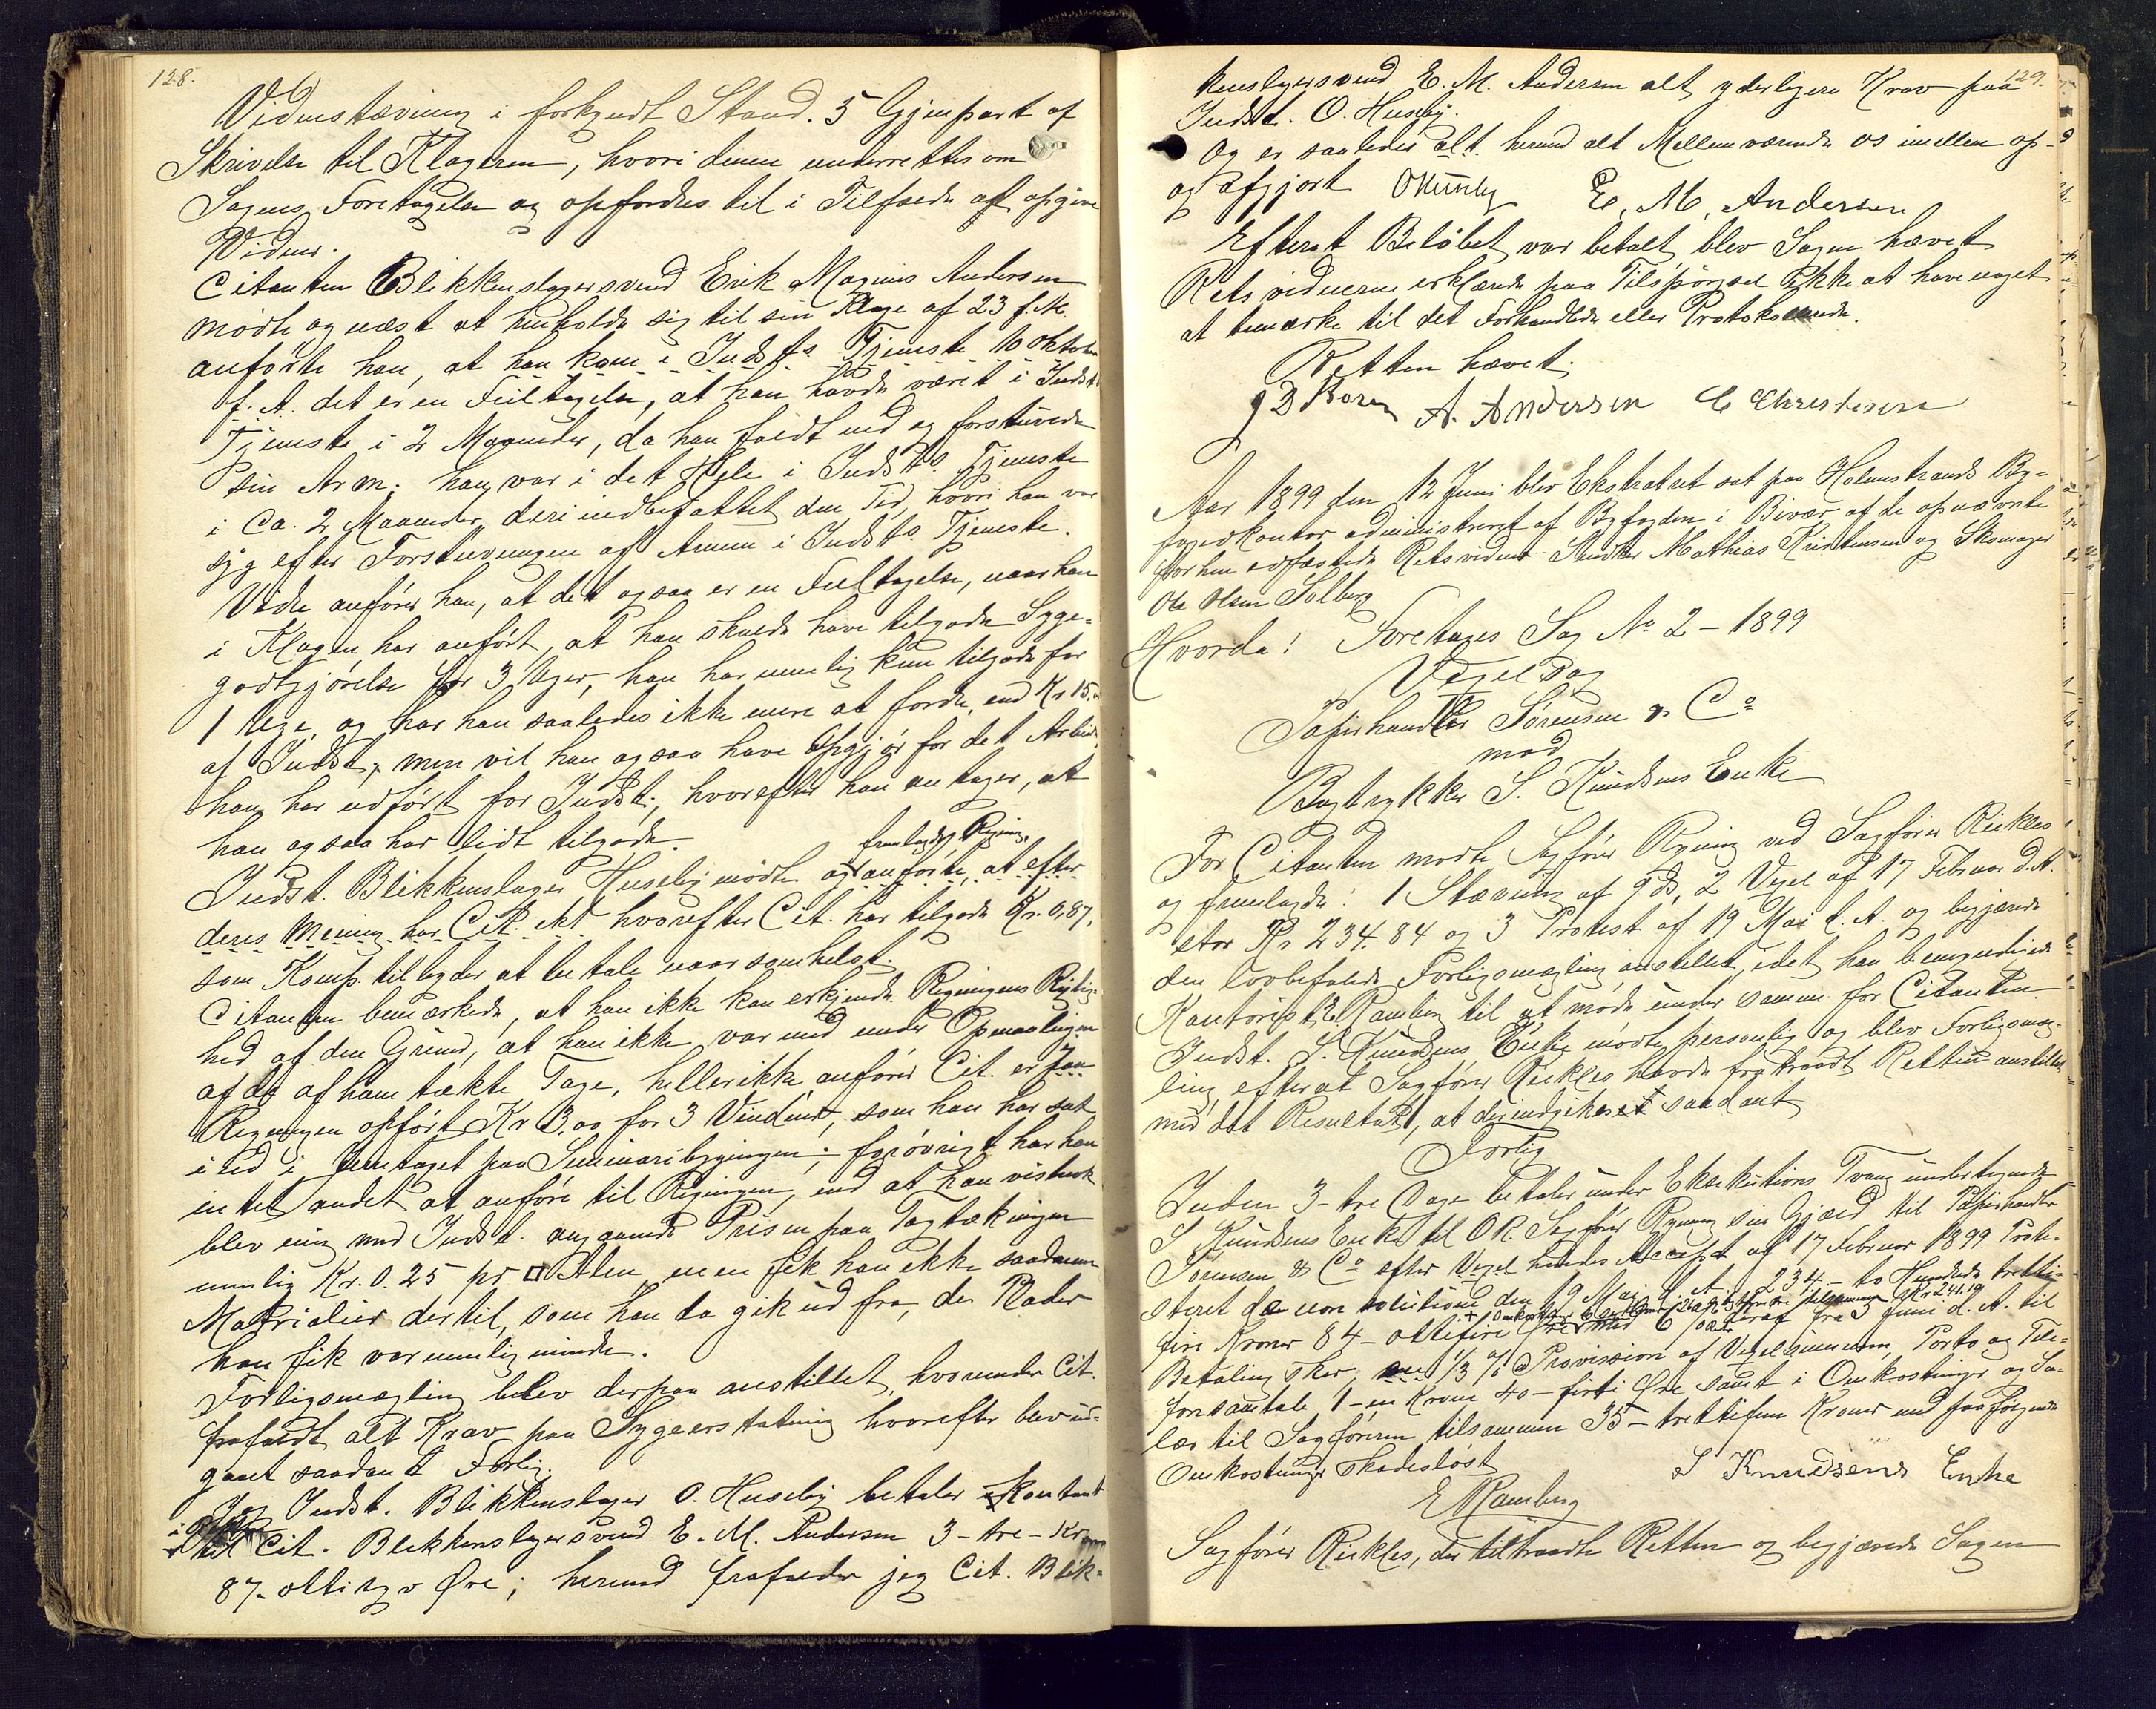 128.
Vidnestævning i forkyndt Stand. 5 Gjenpart af
Skrivelse til Klageren, hvori denne underrettes om
Sagens Foretagelse og opfordres til i Tilfælde at opgive
Vidner.
Citanten Blikkenslagersvend Erik Magnus Andersen
mødte og næst at henholde sig til sin Klage af 23 f. M.
anførte han, at han kom i Indsts Tjeneste 10 Oktober
f. A. det er en Feiltagelse, at han havde været i Indsts
Tjeneste i 2 Maaneder, da han faldt ned og forstuvede
sin Arm; han var i det Hele i Indsts Tjeneste
i Ca. 2 Maaneder, deri indbefattet den Tid, hvori han var
syg efter Forstuvningen af Armen i Indsts Tjeneste.
Videre anfører han, at det ogsaa er en Feiltagelse, naar han
i Klagen har anført, at han skulde have tilgode Syge-
godtgjørelse for 3 Uger, han har nemlig kun tilgode for
1 Uge, og har han saaledes ikke mere at fordre, end Kr 15.
af Indst; men vil han ogsaa have Opgjør for det Arbeide,
han har udført for Indst;, hvorefter han antager, at
han ogsaa har lidt tilgode.
fremlagde Regning,
Indst. Blikkenslager Huseby mødte og anførte, at efter
deres Mening har Cit. hvorefter Cit. har tilgode Kr. 0,87,
som Komp. tilbyder at betale naarsomhelst.
Citanten bemærkede, at han ikke kan erkjende Regningens Rigtig-
hed af den Grund, at han ikke var med under Opmaalingen
af de af ham tækte Tage, heller ikke anfører Cit. er paa
Regningen opført Kr 3.00 for 3 Vinduer, som han har sat
i ud i Jerntaget paa Seminaribygningen; forøvrigt har han
intet andet at anføre til Regningen, end at han vistnok
blev enig med Indst. angaaende Prisen paa Tagtækningen
nemlig Kr. 0.25 pr □ Alen, men fik han ikke saadanne
Materialier dertil, som han da gik ud fra, de Plader
han fik var nemlig mindre.
Forligsmægling blev derpaa anstillet, hvorunder Cit.
frafaldt alt Krav paa Sygeerstatning hvorefter blev ind-
gaaet saadant Forlig:
Jeg Indst. Blikkenslager O. Huseby betaler kontant
til Cit. Blikkenslagersvend E. M. Andersen 3 - tre - Kroner
87 - ottisyv Øre; hermed frafalder jeg Cit. Blik-
129.
kenslagersvend E. M. Andersen alt yderligere Krav paa
Indst. O. Huseby.
Og er saaledes alt hermed alt Mellemværende os imellem op-
og afgjort OHuseby E. M. Andersen
Efterat Beløbet var betalt, blev Sagen hævet
Retsvidnerne erklærede paa Tilspørgsel ikke at have noget
at bemærke til det Forhandlede eller Protokollerede.
Retten hævet.
A. Andersen C Christensen
Aar 1899 den 12 Juni blev Ekstraret sat paa Holmestrands By-
fogedkontor administreret af Byfogden i Bivær af de opnævnte
forhen edfæstede Retsvidner Mathias Kristensen og Skomager
Ole Olsen Solberg
Hvorda! Foretages Sag No 2 - 1899
Vexelsag
Papirhandler Sørensen & Co
mod
Bogtrykker S. Knudsens Enke
For Citanten mødte Sagfører Ryning ved Sagfører Rickles
og fremlagde: 1 Stævning af 9 ds, 2 Vexel af 17 Februar d. A.
stor Kr 234.84 og 3 Protest af 19 Mai d. A. og begjærede
den lovbefalede Forligsmægling anstillet, idet han bemyndigede
Kontorist E. Ramberg til at møde under samme for Citanten.
Indst. S. Knudsens Enke mødte personlig og blev Forligsmæg-
ling, efterat Sagfører Rickles havde fratraadt Retten anstillet
med det Resultat, at der indgikes saadant
Forlig
Inden 3 - tre Dage betaler under Eksekutions Tvang undertegnede
S Knudsens Enke til OR. Sagfører Ryning sin Gjæld til Papirhandler
Sørensen & Co efter Vexel hendes Accept af 17 Februar 1899. Prote-
steret de non solutione den 19 Mai d. A. 234 - to Hundrede tretti-
fire Kroner 84 - ottifire Øre med 6 % deraf fra 3 Juni d. A. til
Betaling sker, 1/3 % Provision af Vexelsummen, Porto og Tele-
fonsamtale 1 - en Krone 40 - førti Øre samt i Omkostninger og Sa-
lær til Sagføreren tilsammen 35 - trettifem Kroner med paafølgende
Omkostninger skadesløst
S Knudsens Enke
E Ramberg
Sagfører Rickles, der tiltraadte Retten og begjærede Sagen